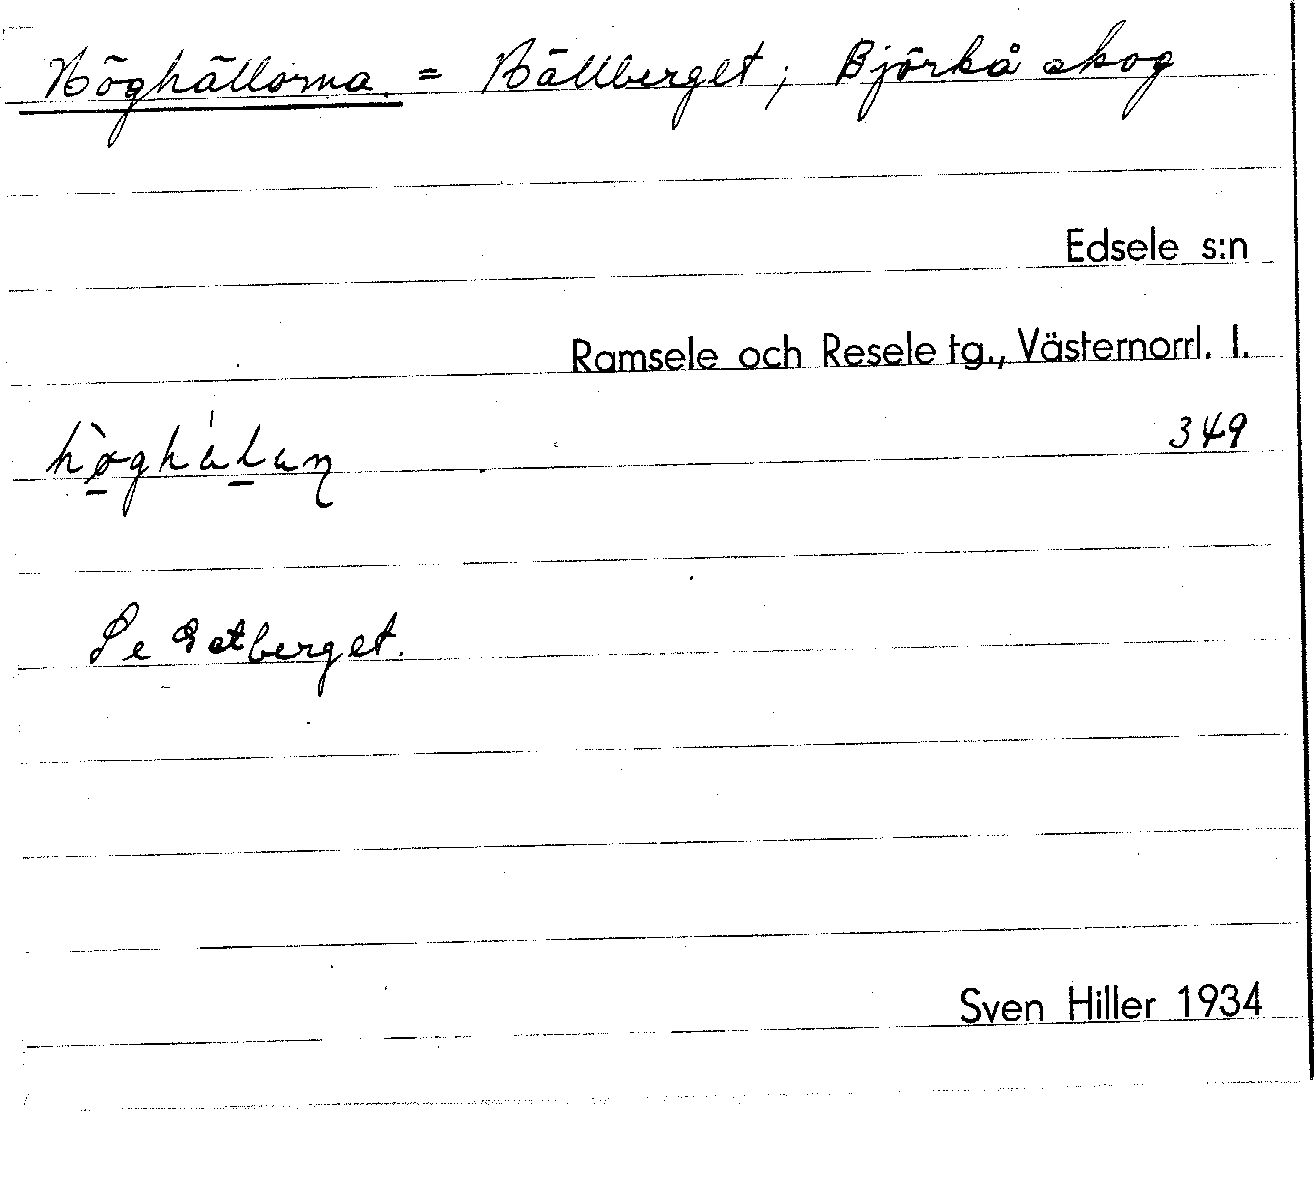 Höghällorna = Hällberget; Björkå skog
Edsele s:n
Ramsele och Resele tg., Västernorrl. l.
349
Se
Sven Hiller 1934